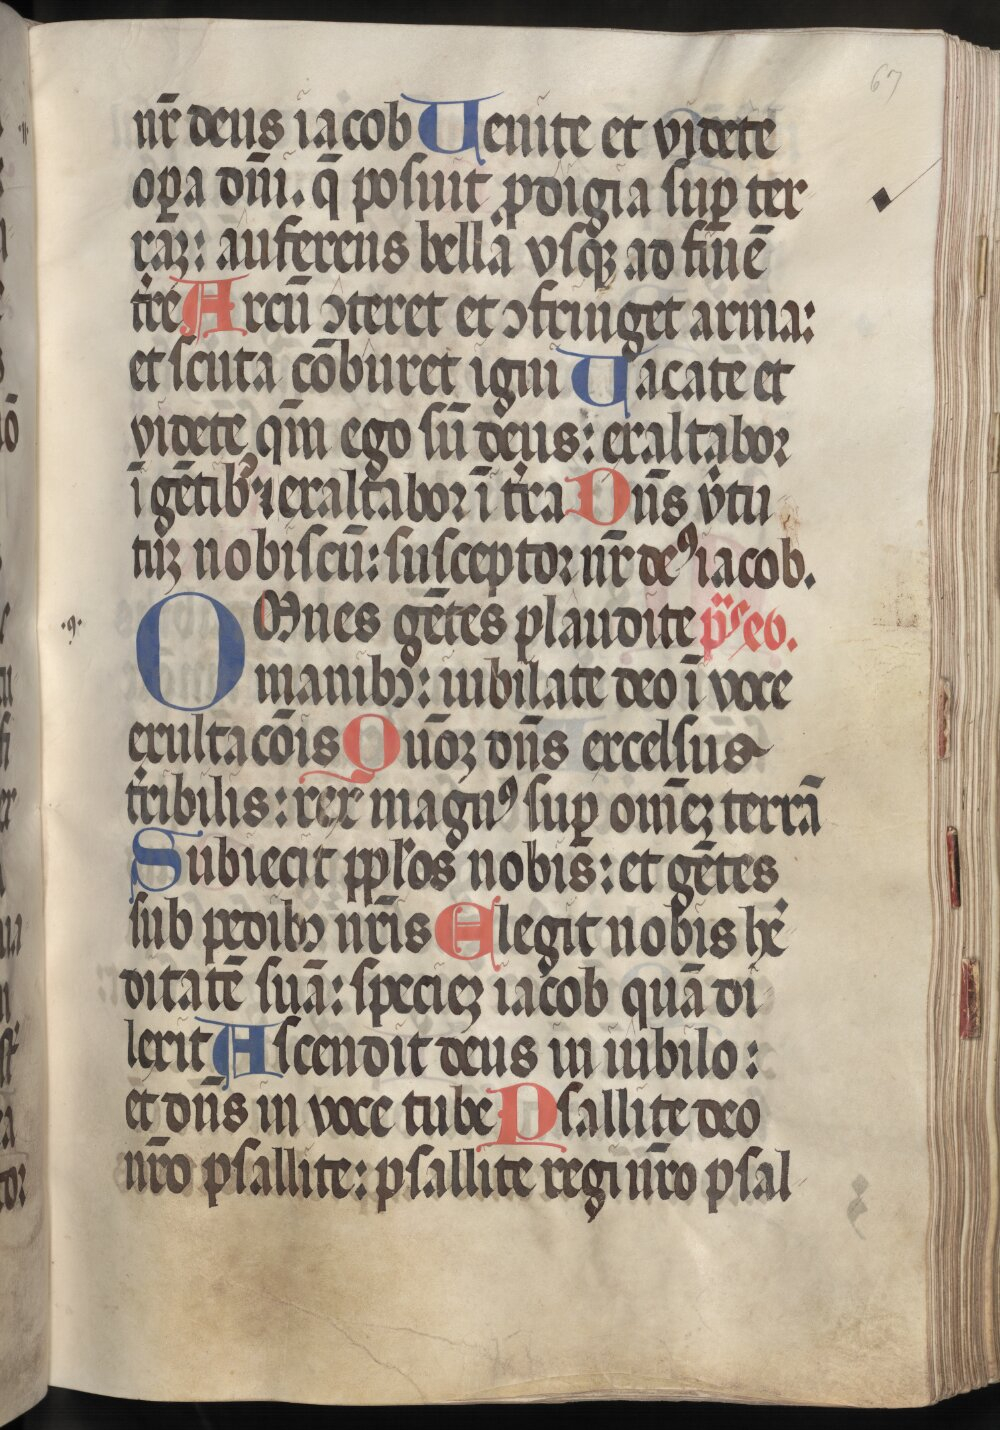 67
nr̄ deus iacob Uenite et videte
oꝑa dn̄i. q̄ posuit ꝓdigia suꝑ ter
raꝫ: auferens bella vsqꝫ ad finē
tr̄e Arcū ↄteret et ↄfringet arma:
et scuta cōburet igni Uacate et
videte qm̄ ego sū deus: exaltabor
ī gētibꝰ ⁊ exaltabor ī tr̄a Dn̄s v̄tu
tuꝫ nobiscū: susceptor nr̄ deꝰ iacob.
·9· OMnes gētes plaudite p̄s eb.
manibꝫ: iubilate deo ī voce
exultacōis Quōꝫ dn̄s excelsus
tr̄ibilis: rex magnꝰ suꝑ om̄eꝫ terrā
Subiecit pplos nobis: et gētes
sub pedibꝫ nr̄is Elegit nobis he᷑
ditatē suā: scpecieꝫ iacob quā di
lexit Ascendit deus in iubilo:
et dn̄s in voce tube Psallite deo
nr̄o psallite: psallite regi nr̄o psal